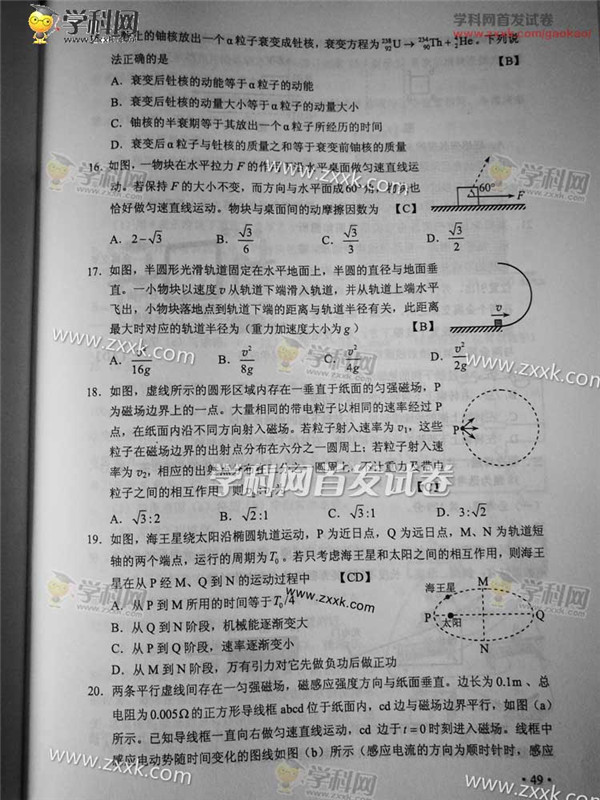 学科网首发试卷
www.zxxk.com/gaokao/
学科网
www.zxxk.com
的铀核放出一个α粒子衰变成钍核，衰变方程为²³⁸₉₂U→²³⁴₉₀Th+⁴₂He。下列说
法正确的是 【B】
A．衰变后钍核的动能等于α粒子的动能
B．衰变后钍核的动量大小等于α粒子的动量大小
C．铀核的半衰期等于其放出一个α粒子所经历的时间
D．衰变后α粒子与钍核的质量之和等于衰变前铀核的质量
16．如图，一物块在水平拉力F的作用下沿水平桌面做匀速直线运
动。若保持F的大小不变，而方向与水平面成60°角，物块也
恰好做匀速直线运动。物块与桌面间的动摩擦因数为 【C】
A．2-√3 B．√3/6 C．√3/3 D．√3/2
60°
F
17．如图，半圆形光滑轨道固定在水平地面上，半圆的直径与地面垂
直。一小物块以速度v从轨道下端滑入轨道，并从轨道上端水平
飞出，小物块落地点到轨道下端的距离与轨道半径有关，此距离
最大时对应的轨道半径为（重力加速度大小为g） 【B】
A．v²/16g B．v²/8g C．v²/4g D．v²/2g
v
18．如图，虚线所示的圆形区域内存在一垂直于纸面的匀强磁场，P
为磁场边界上的一点。大量相同的带电粒子以相同的速率经过P
点，在纸面内沿不同方向射入磁场。若粒子射入速率为v₁，这些
粒子在磁场边界的出射点分布在六分之一圆周上；若粒子射入速
率为v₂，相应的出射点分布在三分之一圆周上。不计重力及带电
粒子之间的相互作用。则v₂:v₁为 【C】
学科网首发试卷
A．√3:2 B．√2:1 C．√3:1 D．3:√2
P
19．如图，海王星绕太阳沿椭圆轨道运动，P为近日点，Q为远日点，M、N为轨道短
轴的两个端点，运行的周期为T₀。若只考虑海王星和太阳之间的相互作用，则海王
星在从P经M、Q到N的运动过程中 【CD】
A．从P到M所用的时间等于T₀/4
B．从Q到N阶段，机械能逐渐变大
C．从P到Q阶段，速率逐渐变小
D．从M到N阶段，万有引力对它先做负功后做正功
海王星
M
P
太阳
Q
N
20．两条平行虚线间存在一匀强磁场，磁感应强度方向与纸面垂直。边长为0.1m、总
电阻为0.005Ω的正方形导线框abcd位于纸面内，cd边与磁场边界平行，如图（a）
所示。已知导线框一直向右做匀速直线运动，cd边于t=0时刻进入磁场。线框中
感应电动势随时间变化的图线如图（b）所示（感应电流的方向为顺时针时，感应
·49·